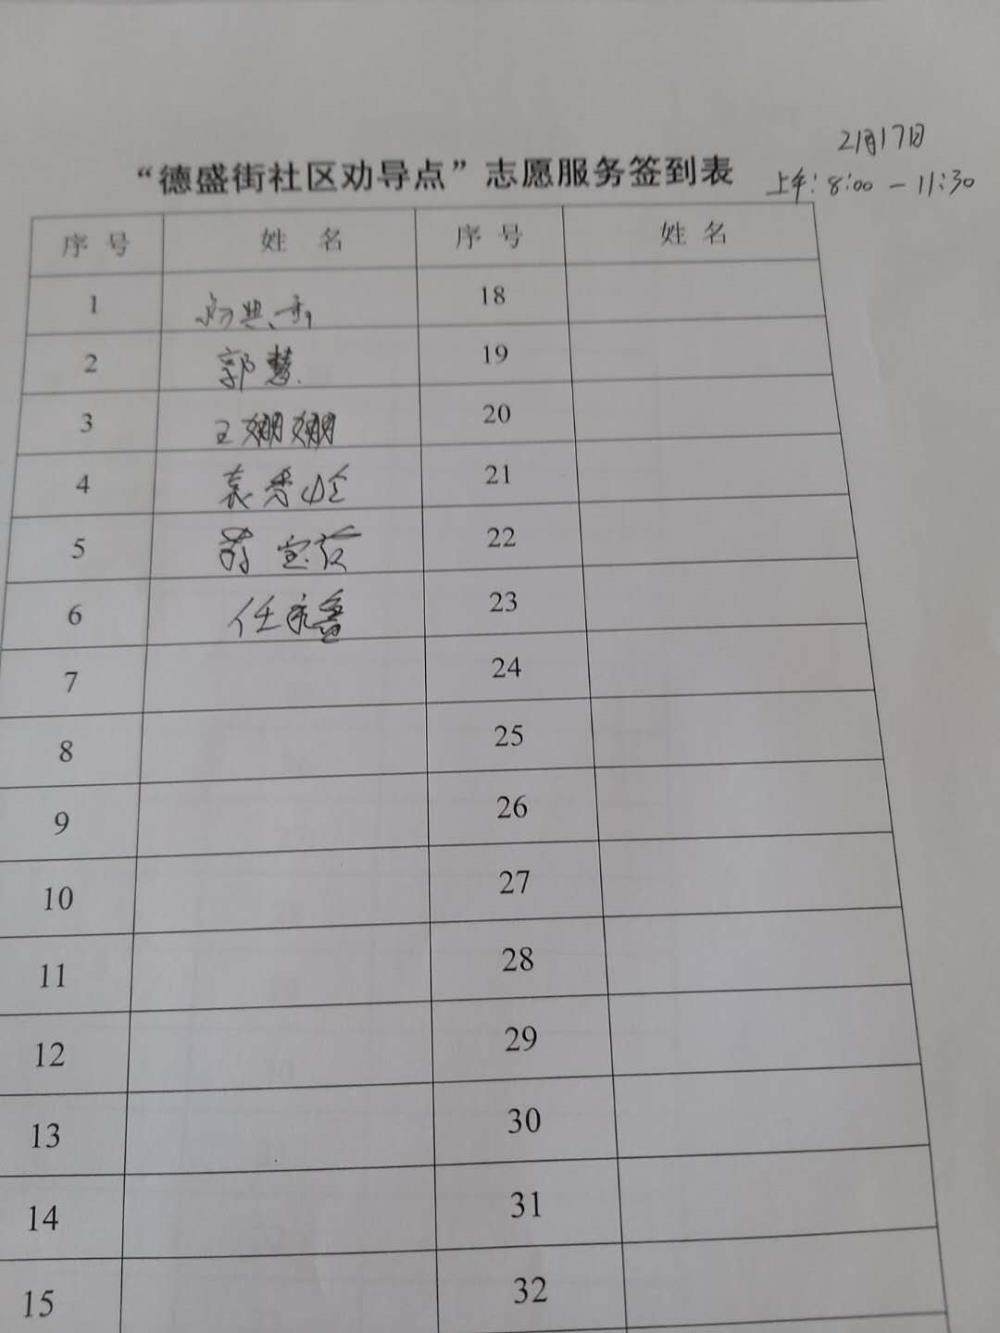 2月17日
“德盛街社区劝导点”志愿服务签到表
上午：8:00 — 11:30
序号 姓名 序号 姓名
1 18
2 郭慧 19
3 王姗姗 20
4 袁秀 21
5 22
6 任永鲁 23
7 24
8 25
9 26
10 27
11 28
12 29
13 30
14 31
15 32